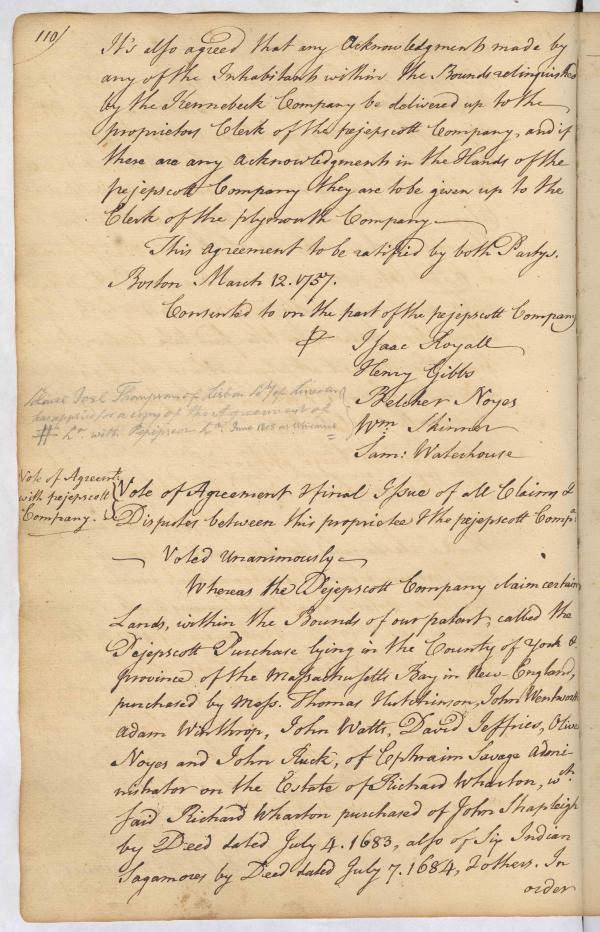 110/
It's also agreed that any Acknowledgments made by
any of the Inhabitants within the Bounds relinquished
by the Kennebeck Company be delivered up to the
proprietors Clerk of the pejepscott Company, and if
there are any acknowledgments in the Hands of the
pejepscott Company they are to be given up to the
Clerk of the plymouth Company.
This agreement to be ratified by both Partys.
Boston March 12. 1757.
Consented to on the part of the pejepscott Company
Isaac Royall
Henry Gibbs
Belcher Noyes
Wm Skinner
Sam: Waterhouse
Joel Thompson of Lisbon
has applied for a copy of the Agreement of
Co. with Pejepscot Co. June 1808
Vote of Agreemt:
with pejepscott
Company.
Vote of Agreement & final Issue of all Claims &
Disputes between this proprietee & the pejepscott Compa:
Voted Unanimously
Whereas the Pejepscott Company claim certain
Lands, within the Bounds of our patent, called the
Pejepscott Purchase lying in the County of York &
province of the Massachusetts Bay in New England,
purchased by Mess. Thomas Hutchinson, John Wentworth
Adam Winthrop, John Watts, David Jeffries, Oliver
Noyes and John Ruck, of Ephraim Savage Admi-
nistrator on the Estate of Richard Wharton, wch.
said Richard Wharton purchased of John Shapleigh
by Deed dated July 4. 1683, also of Six Indian
Sagamores by Deed dated July 7. 1684, & others. In
order